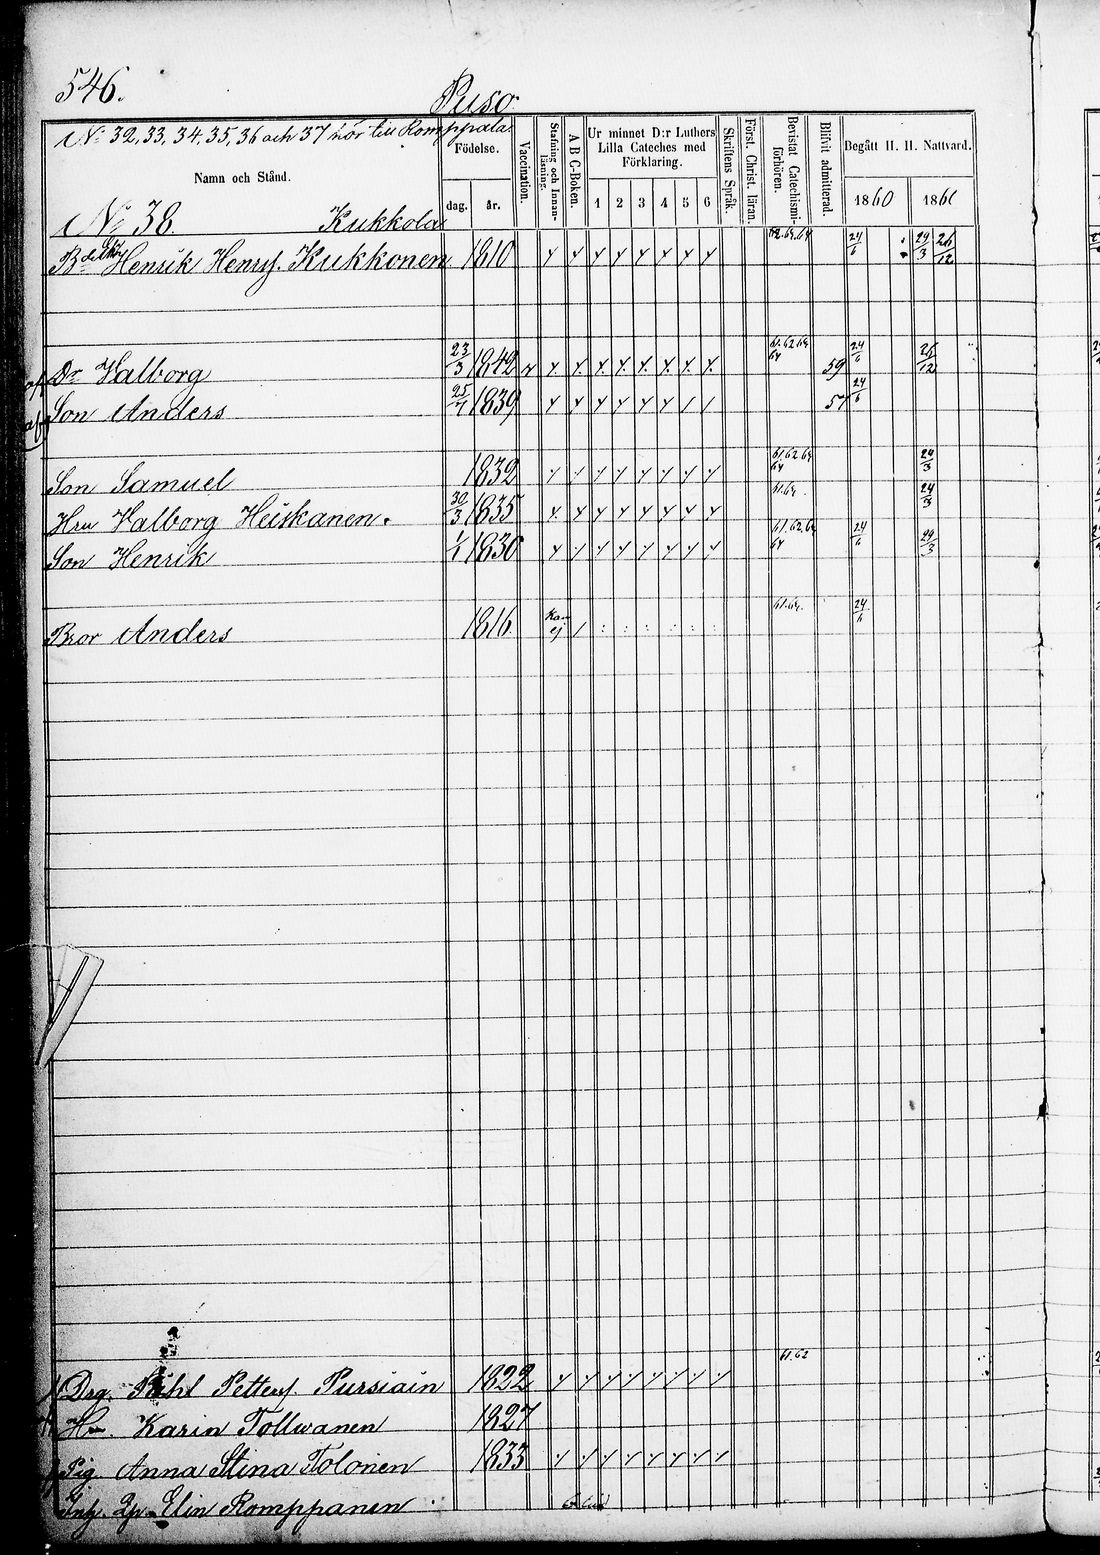 546.
Puso
No 32, 33, 34, 35, 36 och 37 hör till Romppala.
Namn och Stånd.
Födelse.
dag. år.
Vaccination.
Stafning och Innanläsning.
A B C-Boken.
Ur minnet D:r Luthers
Lilla Cateches med
Förklaring.
1 2 3 4 5 6
Skriftens Språk.
Först. Christ. läran.
Bevistat Catechismiförhören.
Blifvit admitterad.
Begått H. H. Nattvard.
1860 1861
No 38. Kukkola
Henrik Henrs. Kukkonen 1810 24/6 24/3 26/12
Dr Valborg 23/3 1842 61.62.63 64 59 24/6 26/12
Son Anders 25/7 1839 57 24/6
Son Samuel 1832 61.62.63 64 24/3
Hru Valborg Heiskanen. 30/3 1835 24/3
Son Henrik 1/1 1830 61.62.63 64 24/6 24/3
Bror Anders 1816 Kan ej 24/6
Drg. Påhl Petters. Pursiain 1822 61.62
Hru Karin Tollwanen 1827
Pig. Anna Stina Tolonen 1833
Inh. Elin Romppanen